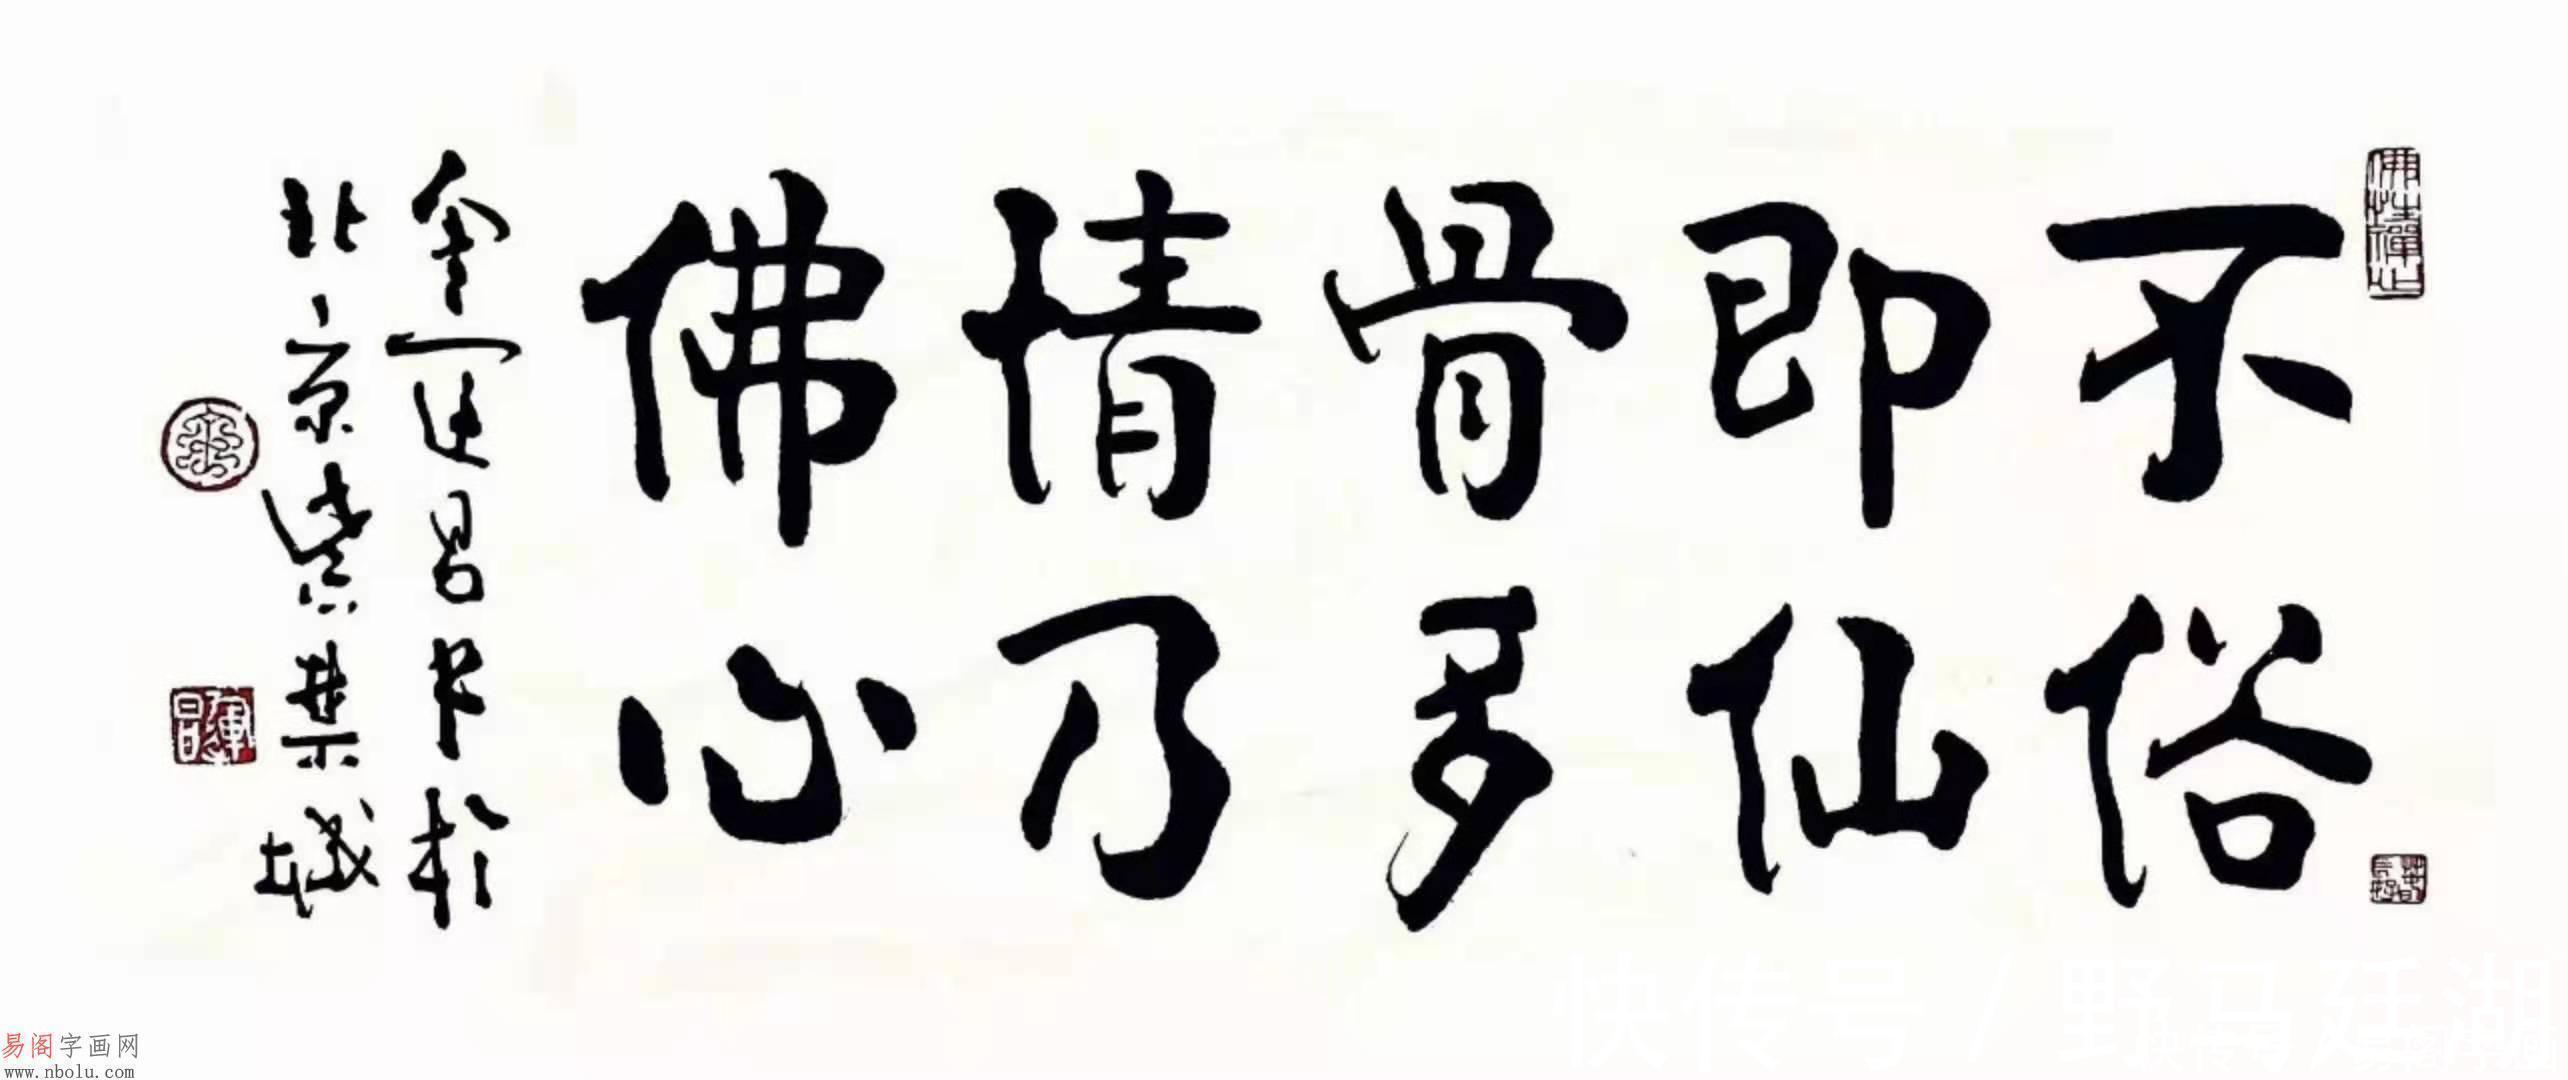 不俗
即仙
骨多
情乃
佛心
金運昌书於
北京紫禁城
運昌
易阁字画网
www.nbolu.com
快传号 /